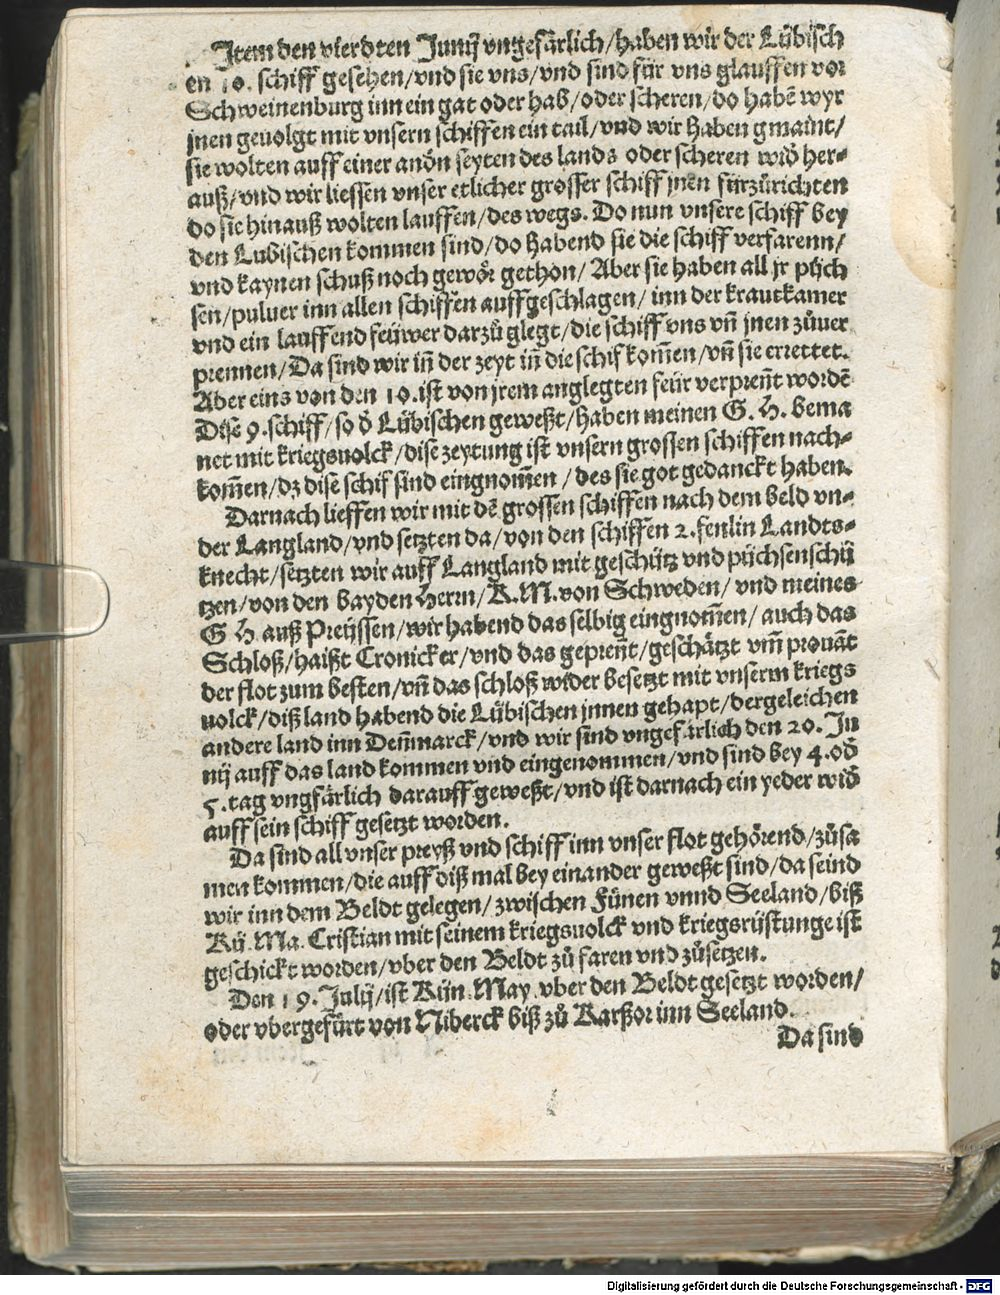 Item den vierdten Junij vngefärlich/haben wir der Lübisch
en 10. schiff gesehen/vnd sie vns/vnd sind für vns glauffen vor
Schweinenburg inn ein gat oder hab/oder scheren/do habē wyr
jnen geuolgt mit vnsern schiffen ein tail/vnd wir haben gmaint/
sie wolten auff einer anōn seyten des lands oder scheren wiď her-
auß/vnd wir liessen vnser etlicher grosser schiff jnen fürzůrichten
do sie hinauß wolten lauffen/des wegs. Do nun vnsere schiff bey
den Lubischen kommen sind/do habend sie die schiff verfarenn/
vnd kaynen schuß noch gewör gethon/Aber sie haben all jr püch
sen/puluer inn allen schiffen auffgeschlagen/inn der krautkamer
vnd ein lauffend feüwer darzů glegt/die schiff vns vn̄ jnen zůuer
prennen/Da sind wir in̄ der zeyt in̄ die schif kom̄en/vn̄ sie errettet.
Aber eins von den 10. ist von jrem anglegten feür verpren̄t wordē
Dise 9. schiff/so ď Lübischen geweßt/haben meinen G. H. bema
net mit kriegsuolck/dise zeytung ist vnsern grossen schiffen nach-
kom̄en/dz dise schif sind eingnom̄en/des sie got gedanckt haben.
Darnach lieffen wir mit dē grossen schiffen nach dem beld vn-
der Langland/vnd setzten da/von den schiffen 2. fenlin Landts-
knecht/setzten wir auff Langland mit geschütz vnd püchsenschü
tzen/von den bayden Herrn/K. M. von Schweden/vnd meines
G H auß Preüssen/wir habend das selbig eingnom̄en/auch das
Schloß/haißt Cronicker/vnd das gepren̄t/geschätzt vm̄ prouāt
der flot zum besten/vn̄ das schloß wider besetzt mit vnserm kriegs
uolck/diß land habend die Lübischen jnnen gehapt/dergeleichen
andere land inn Den̄marck/vnd wir sind vngefärlich den 20. Ju
nij auff das land kommen vnd eingenommen/vnd sind bey 4. oď
5. tag vngfärlich darauff geweßt/vnd ist darnach ein yeder wiď
auff sein schiff gesetzt worden.
Da sind all vnser preyß vnd schiff inn vnser flot gehörend/zůsa
men kommen/die auff diß mal bey einander geweßt sind/da seind
wir inn dem Beldt gelegen/zwischen Fünen vnnd Seeland/biß
Kü. Ma. Cristian mit seinem kriegsuolck vnd kriegsrüstunge ist
geschickt worden/vber den Beldt zů faren vnd zůsetzen.
Den 19. Julij/ist Kün. May. vber den Beldt gesetzt worden/
oder vbergefürt von Niberck biß zů Karßor inn Seeland.
Da sind
Digitalisierung gefördert durch die Deutsche Forschungsgemeinschaft - DFG